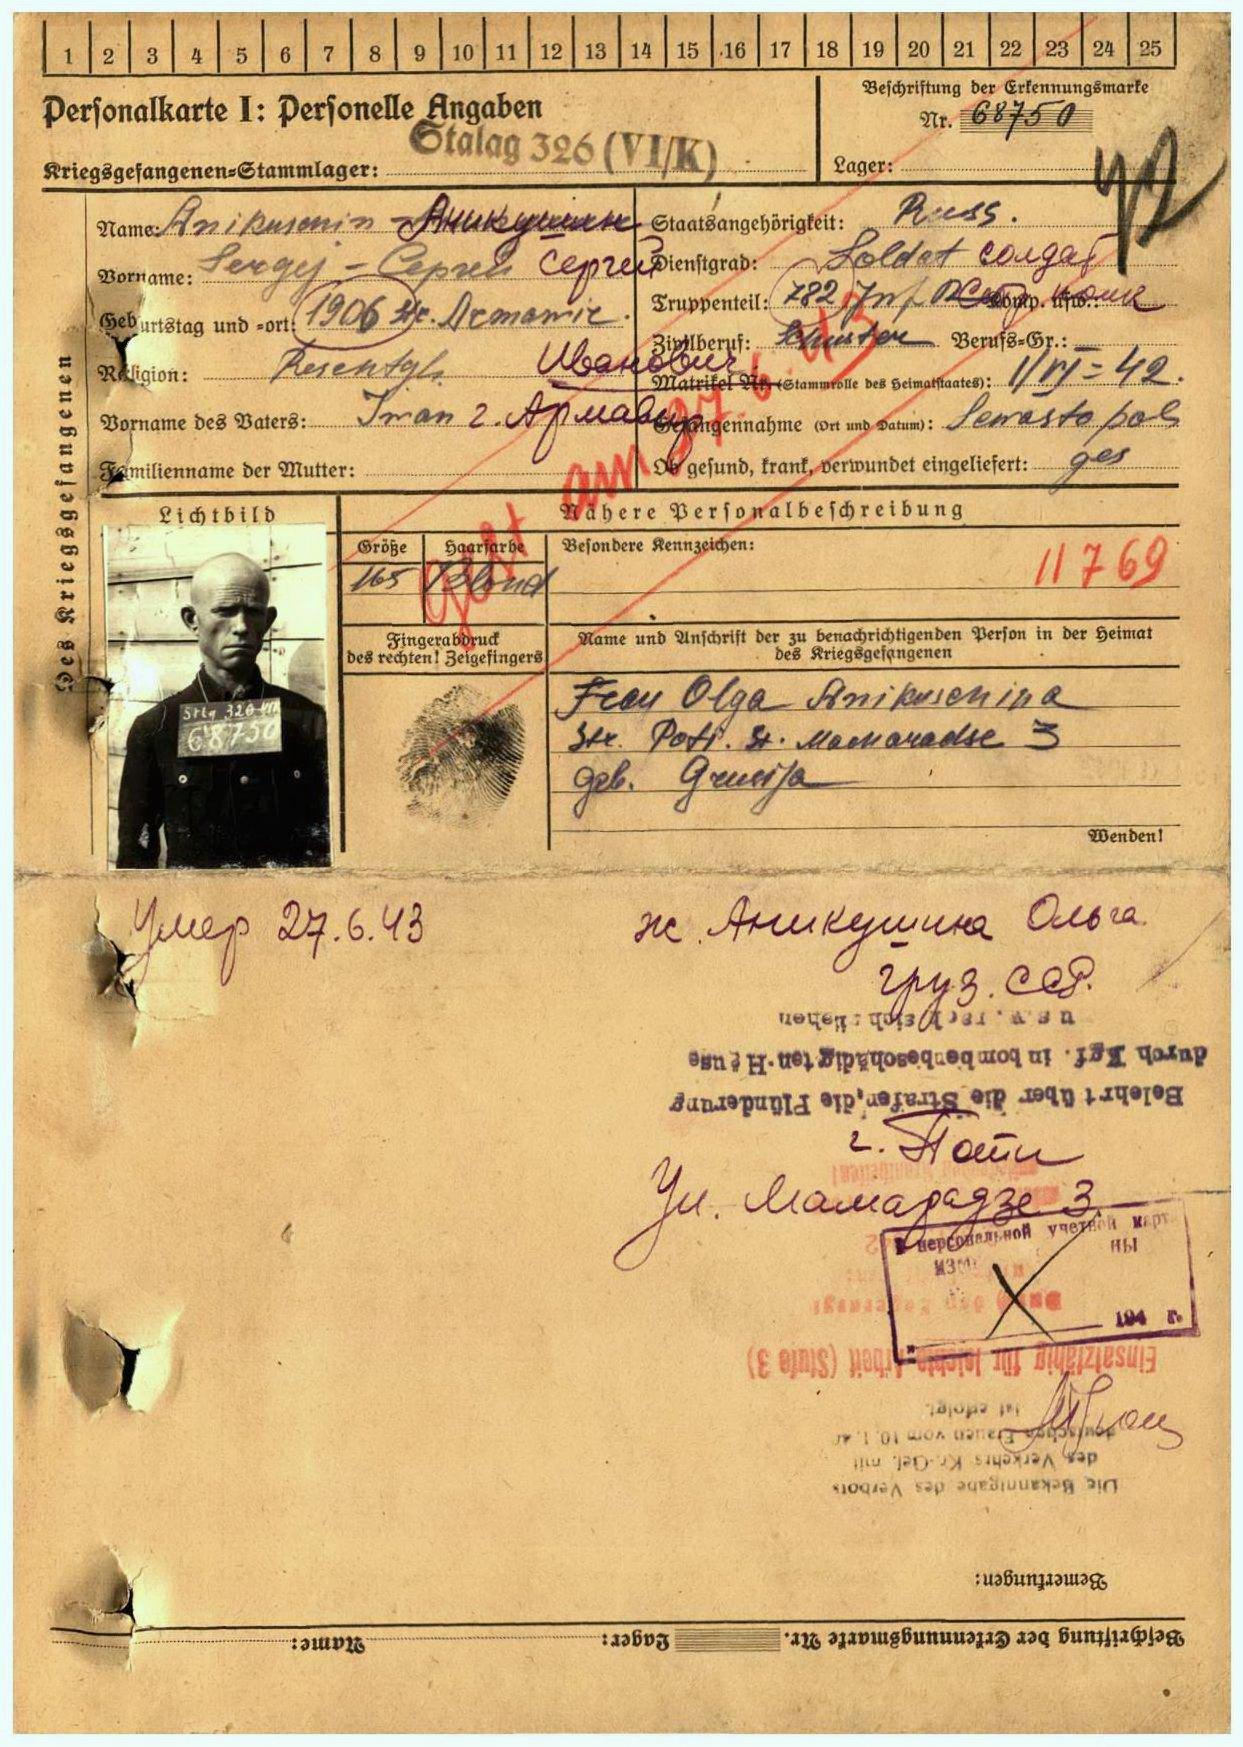 1 2 3 4 5 6 7 8 9 10 11 12 13 14 15 16 17 18 19 20 21 22 23 24 25
Personalkarte I: Personelle Angaben
Beschriftung der Erkennungsmarke
Nr. 68750
Kriegsgefangenen-Stammlager: Stalag 326 (VI/K)
Lager:
Des Kriegsgefangenen
Name: Anikuschin - Аникушин
Staatsangehörigkeit: Russ.
Vorname: Sergej - Сергей Сергей
Dienstgrad: Soldat солдат
Geburtstag und -ort: 1906 Armawir.
Truppenteil: 782 Inf. Komp. usw.:
Zivilberuf: Schuster Berufs-Gr.:
Religion: Иванович
Matrikel Nr. (Stammrolle des Heimatstaates): 1/VI = 42.
Vorname des Vaters: Iwan г. Армавир
Gefangennahme (Ort und Datum): Sewastopol
Familienname der Mutter:
Ob gesund, krank, verwundet eingeliefert: ges
gest am 27.6.43
Lichtbild
Nähere Personalbeschreibung
Größe
Haarfarbe
Besondere Kennzeichen:
165 Blond
11769
Fingerabdruck
des rechten! Zeigefingers
Name und Anschrift der zu benachrichtigenden Person in der Heimat
des Kriegsgefangenen
Stlg 326
68750
Frau Olga Anikuschina
Str. Poti. St. Macharadse 3
geb. Grusija
Wenden!
Умер 27.6.43
ж. Аникушина Ольга
груз. ССР.
u.s.w.
durch Kgf. in bombenbeschädigten Häuse
Belehrt über die Strafen, die Plünderung
г. Поти
Ул. Мамарадзе 3
персональной учетной карт
ны
194 г.
Einsatzfähig für leichte Arbeit (Stufe 3)
ist erfolgt.
deutschen Frauen vom 10.1.
des Verkehrs Kr.-Gef. mit
Die Bekanntgabe des Verbots
Bemerkungen:
Beschriftung der Erkennungsmarke Nr. Lager: Name: